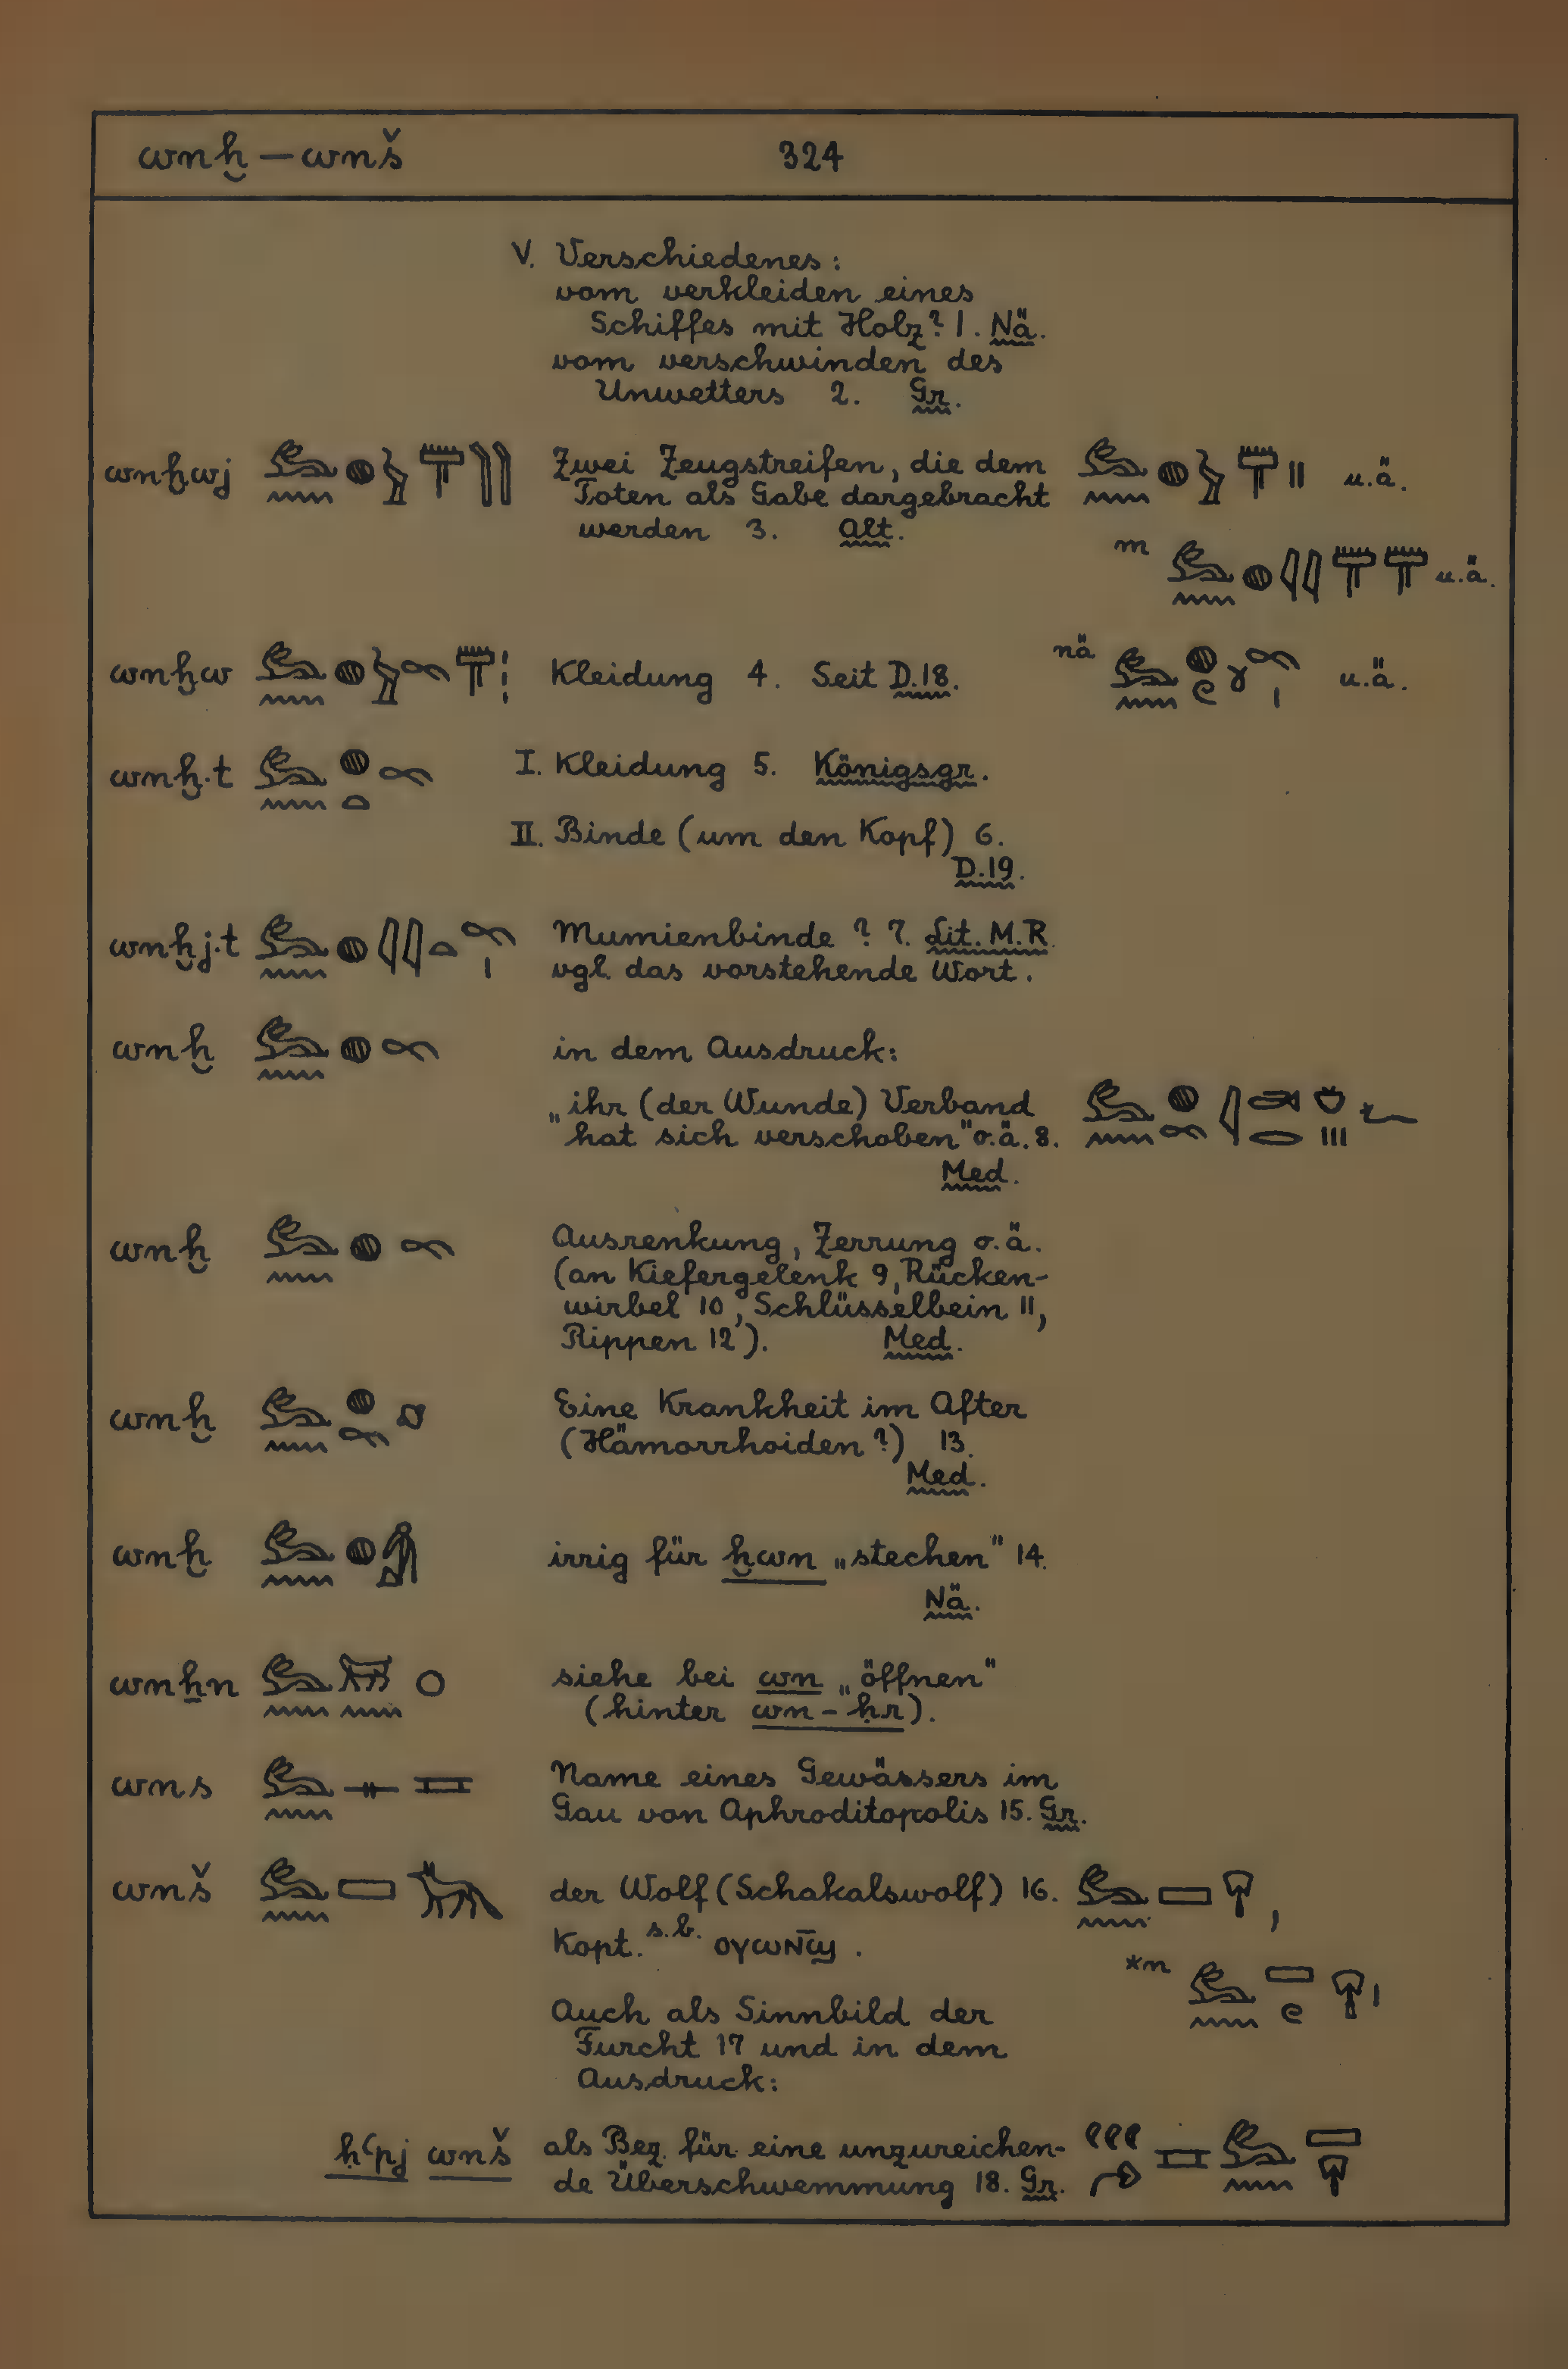 wnḫ — wnš 324
V. Verschiedenes:
vom verkleiden eines
Schiffes mit Holz? 1. Nä.
vom verschwinden des
Unwetters 2. Gr.
wnḫwj Zwei Zeugstreifen, die dem u.ä.
Toten als Gabe dargebracht
werden 3. Alt.
m u.ä.
wnḫw Kleidung 4. Seit D.18. nä u.ä.
wnḫ.t I. Kleidung 5. Königsgr.
II. Binde (um den Kopf) 6.
D.19.
wnḫj.t Mumienbinde ? 7. Lit. M.R.
vgl. das vorstehende Wort.
wnḫ in dem Ausdruck:
„ihr (der Wunde) Verband
hat sich verschoben" o.ä. 8.
Med.
wnḫ Ausrenkung, Zerrung o.ä.
(an Kiefergelenk 9, Rücken-
wirbel 10, Schlüsselbein 11,
Rippen 12). Med.
wnḫ Eine Krankheit im After
(Hämorrhoiden?) 13.
Med.
wnḫ irrig für ḫwn „stechen" 14.
Nä.
wnẖn siehe bei wn „öffnen"
(hinter wn-ḥr).
wns Name eines Gewässers im
Gau von Aphroditopolis 15. Gr.
wnš der Wolf (Schakalswolf) 16. ,
Kopt. s.b. ⲟⲩⲱⲛ̅ϣ .
*n
Auch als Sinnbild der
Furcht 17 und in dem
Ausdruck:
ḥꜥpj wnš als Bez. für eine unzureichen-
de Überschwemmung 18. Gr.